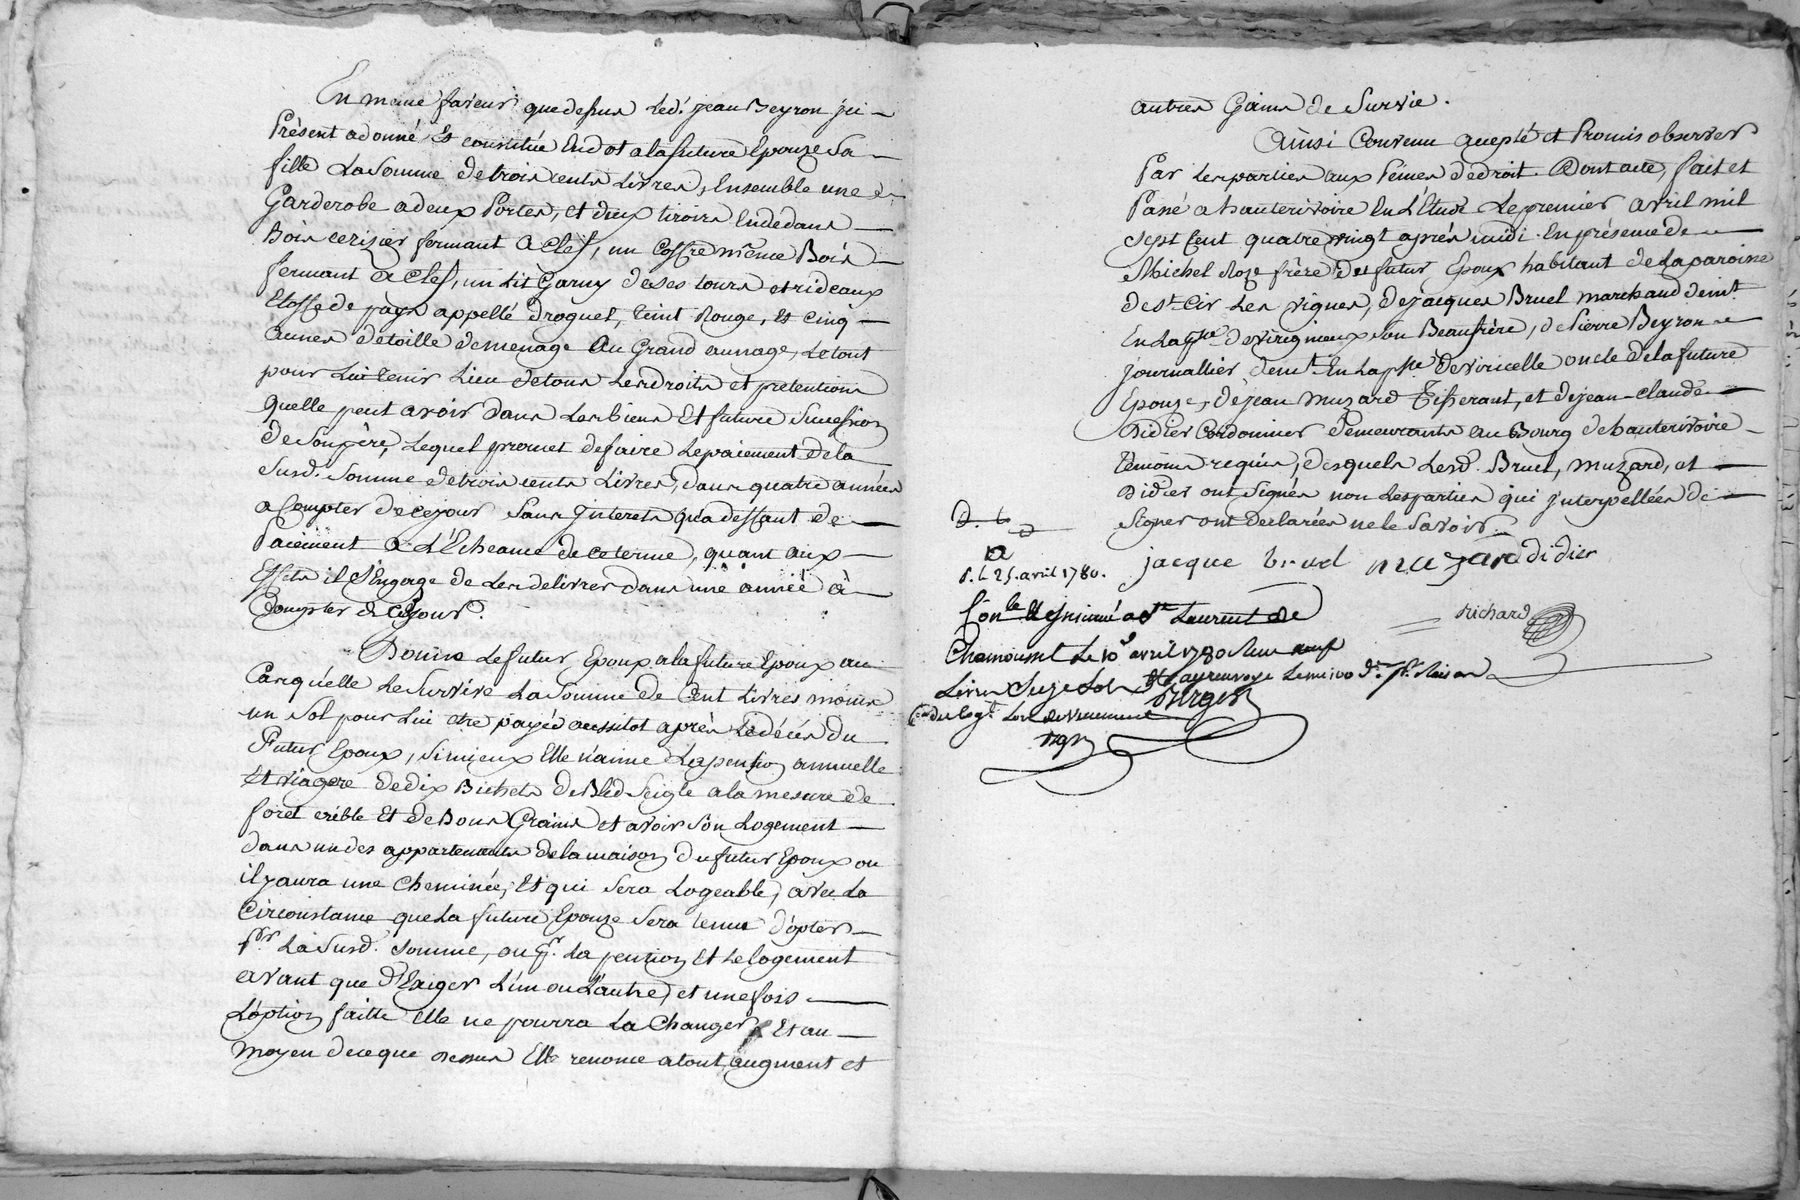 En meme faveur que dessus Led. jean Beyron ici
Présent a donné Et constitué En dot a la future Epouze Sa
fille La Somme de trois cents Livres, Ensemble une
Garderobe a deux Portes, et deux tiroirs En dedans
Bois cerizier fermant a Clef, un Coffre même Bois
fermant a Clef, un Lit Garny de ses tours et rideaux
Etoffe de pays appellé droguet, teint Rouge, Et cinq
aunes de toille de menage au Grand aunage, Le tout
pour Lui tenir Lieu de tous Les droits et pretentions
quelle peut avoir dans Les biens Et future Succession
de Son père, Lequel promet de faire Le paiement de la
Susd. Somme de trois cents Livres, dans quatre années
a Compter de ce jour Sans Interets qu'a deffaut de
Paiement a L'Echeance de ce terme, quant aux
Effets il S'Engage de Les delivrer dans une année à
Compter de ce jour.
Donne Le futur Epoux a la future Epoux au
Cas qu'elle Le Survive La Somme de Cent Livres moins
un Sol pour Lui etre payée aussitot après Le décés du
Futur Epoux, Si mieux Elle n'aime La pension annuelle
Et viagere de dix Bichets de Bled Seigle a la mesure de
foret crible Et de Bons Grains et avoir Son Logement
dans un des appartements de la maison du futur Epoux ou
il y aura une Cheminée, Et qui Sera Logeable, avec La
Circonstance que La future Epouze Sera tenue d'opter
Pr. La Susd. Somme, ou pr. La pension Et Le logement
avant que d'Exiger L'un ou L'autre, et une fois
L'option faitte Elle ne pourra La Changer, Et au
moyen de ce que dessus Elle renonce a tout augment et
autres Gains de Survie.
Ainsi Convenu accepté et Promis observer
Par Les parties aux Peines de droit. Dont acte, fait et
Passé a hauterivoire En L'Etude Le premier avril mil
Sept Cent quatre vingt après midi. En présence de
Michel Roze frère du futur Epoux habitant de La paroisse
de St. Cir Les vignes, de jacques Bruel marchand demt.
En La psse de virigneux Son Beaufrère, de Pierre Beyron
journallier demt. En La psse de viricelle oncle de la future
Epouze, de jean muzard Tisserant, et de jean-Claude
Didier Cordonnier demeurants au Bourg de hauterivoire
temoins requis, desquels Lesd. Bruel, muzard, et
Didier ont Signés non Les parties qui jnterpellées de
Signer ont declarées ne le Savoir.
jacque bruel muzard didier
25. avril 1780.
Richard
Conlé Et Insinué a St Laurent de
Chamousset Le 10 avril 1780 Reçu neuf
Livres